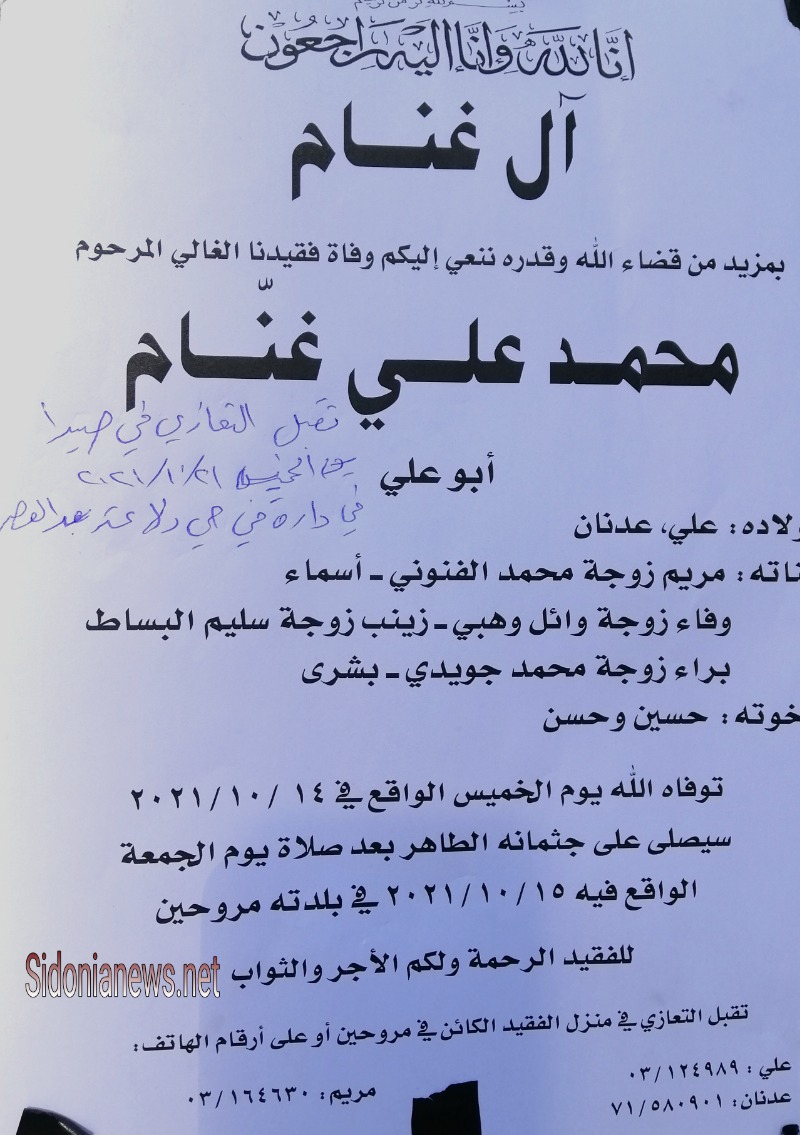 إنا لله وإنا إليه راجعون
آل غنام
بمزيد من قضاء الله وقدره ننعي إليكم وفاة فقيدنا الغالي المرحوم
محمد علي غنّام
تقبل التعازي في صيدا
أبو علي
يوم الخميس ٢٠٢١/١٠/٢١
في دارة في حي دلاعة بعد العصر
ولاده: علي، عدنان
ناته: مريم زوجة محمد الفنوني - أسماء
وفاء زوجة وائل وهبي - زينب زوجة سليم البساط
براء زوجة محمد جويدي - بشرى
خوته: حسين وحسن
توفاه الله يوم الخميس الواقع في ١٤ /١٠/ ٢٠٢١
سيصلى على جثمانه الطاهر بعد صلاة يوم الجمعة
الواقع فيه ٢٠٢١/١٠/١٥ في بلدته مروحين
للفقيد الرحمة ولكم الأجر والثواب
Sidonianews.net
تقبل التعازي في منزل الفقيد الكائن في مروحين أو على أرقام الهاتف:
علي : ٠٣/١٢٤٩٨٩
مريم: ٠٣/١٦٤٦٣٠
عدنان: ٧١/٥٨٠٩٠١